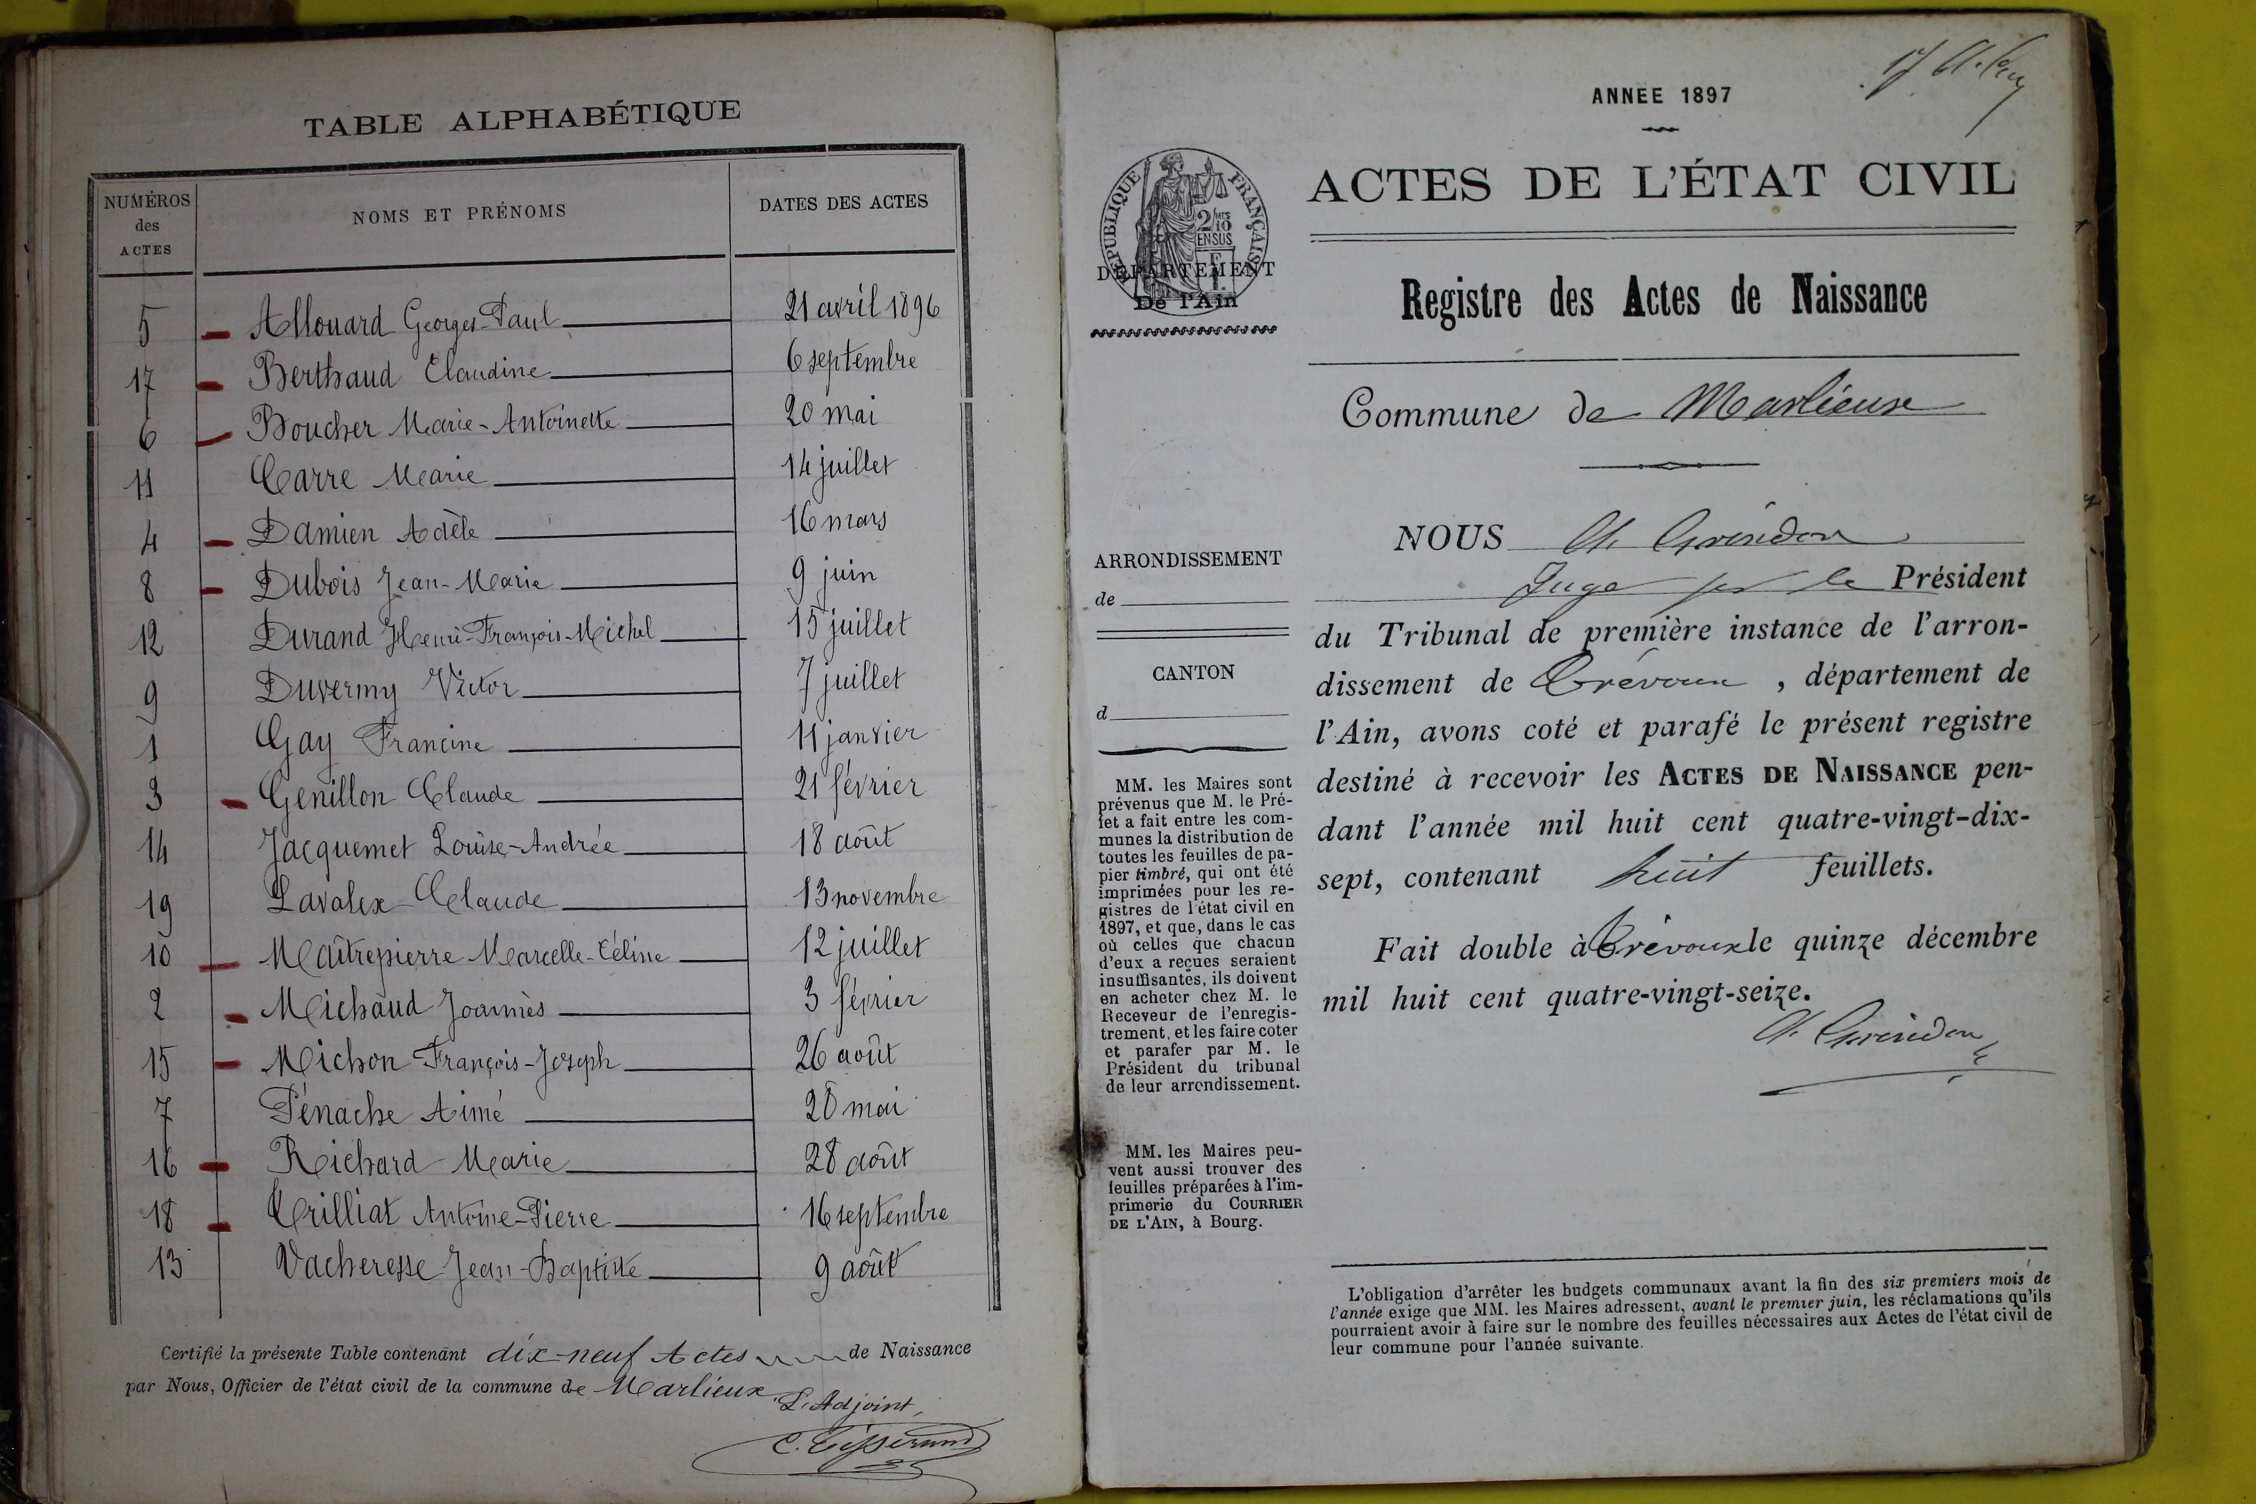 TABLE ALPHABÉTIQUE
NUMÉROS des ACTES NOMS ET PRÉNOMS DATES DES ACTES
5 Allouard Georges-Paul 21 avril 1896
17 Berthaud Claudine 6 septembre
6 Boucher Marie-Antoinette 20 mai
11 Carre Marie 14 juillet
4 Damien Adèle 16 mars
8 Dubois Jean-Marie 9 juin
12 Durand Henri-François-Michel 15 juillet
9 Duvermy Victor 7 juillet
1 Gay Francine 11 janvier
3 Genillon Claude 21 février
14 Jacquemet Louise-Andrée 18 août
19 Lavalex Claude 13 novembre
10 Maîtrepierre Marcelle-Céline 12 juillet
2 Michaud Joannès 3 février
15 Michon François-Joseph 26 août
7 Pénache Aimé 28 mai
16 Richard Marie 28 août
18 Trilliat Antoine-Pierre 16 septembre
13 Vacheresse Jean-Baptiste 9 août
Certifié la présente Table contenant dix-neuf Actes de Naissance
par Nous, Officier de l'état civil de la commune de Marlieux
L'Adjoint,
C. Tisserand
ANNÉE 1897
RÉPUBLIQUE FRANÇAISE
2 10
EN SUS
DÉPARTEMENT
De l'Ain
ARRONDISSEMENT
de
CANTON
d
MM. les Maires sont
prévenus que M. le Pré-
fet a fait entre les com-
munes la distribution de
toutes les feuilles de pa-
pier timbré, qui ont été
imprimées pour les re-
gistres de l'état civil en
1897, et que, dans le cas
où celles que chacun
d'eux a reçues seraient
insuffisantes, ils doivent
en acheter chez M. le
Receveur de l'enregis-
trement, et les faire coter
et parafer par M. le
Président du tribunal
de leur arrondissement.
MM. les Maires peu-
vent aussi trouver des
feuilles préparées à l'im-
primerie du COURRIER
DE L'AIN, à Bourg.
ACTES DE L'ÉTAT CIVIL
Registre des Actes de Naissance
Commune de Marlieux
NOUS Ch. Grindon
Juge pr le Président
du Tribunal de première instance de l'arron-
dissement de Trévoux, département de
l'Ain, avons coté et parafé le présent registre
destiné à recevoir les ACTES DE NAISSANCE pen-
dant l'année mil huit cent quatre-vingt-dix-
sept, contenant huit feuillets.
Fait double à Trévoux le quinze décembre
mil huit cent quatre-vingt-seize.
Ch. Grindon
L'obligation d'arrêter les budgets communaux avant la fin des six premiers mois de
l'année exige que MM. les Maires adressent, avant le premier juin, les réclamations qu'ils
pourraient avoir à faire sur le nombre des feuilles nécessaires aux Actes de l'état civil de
leur commune pour l'année suivante.